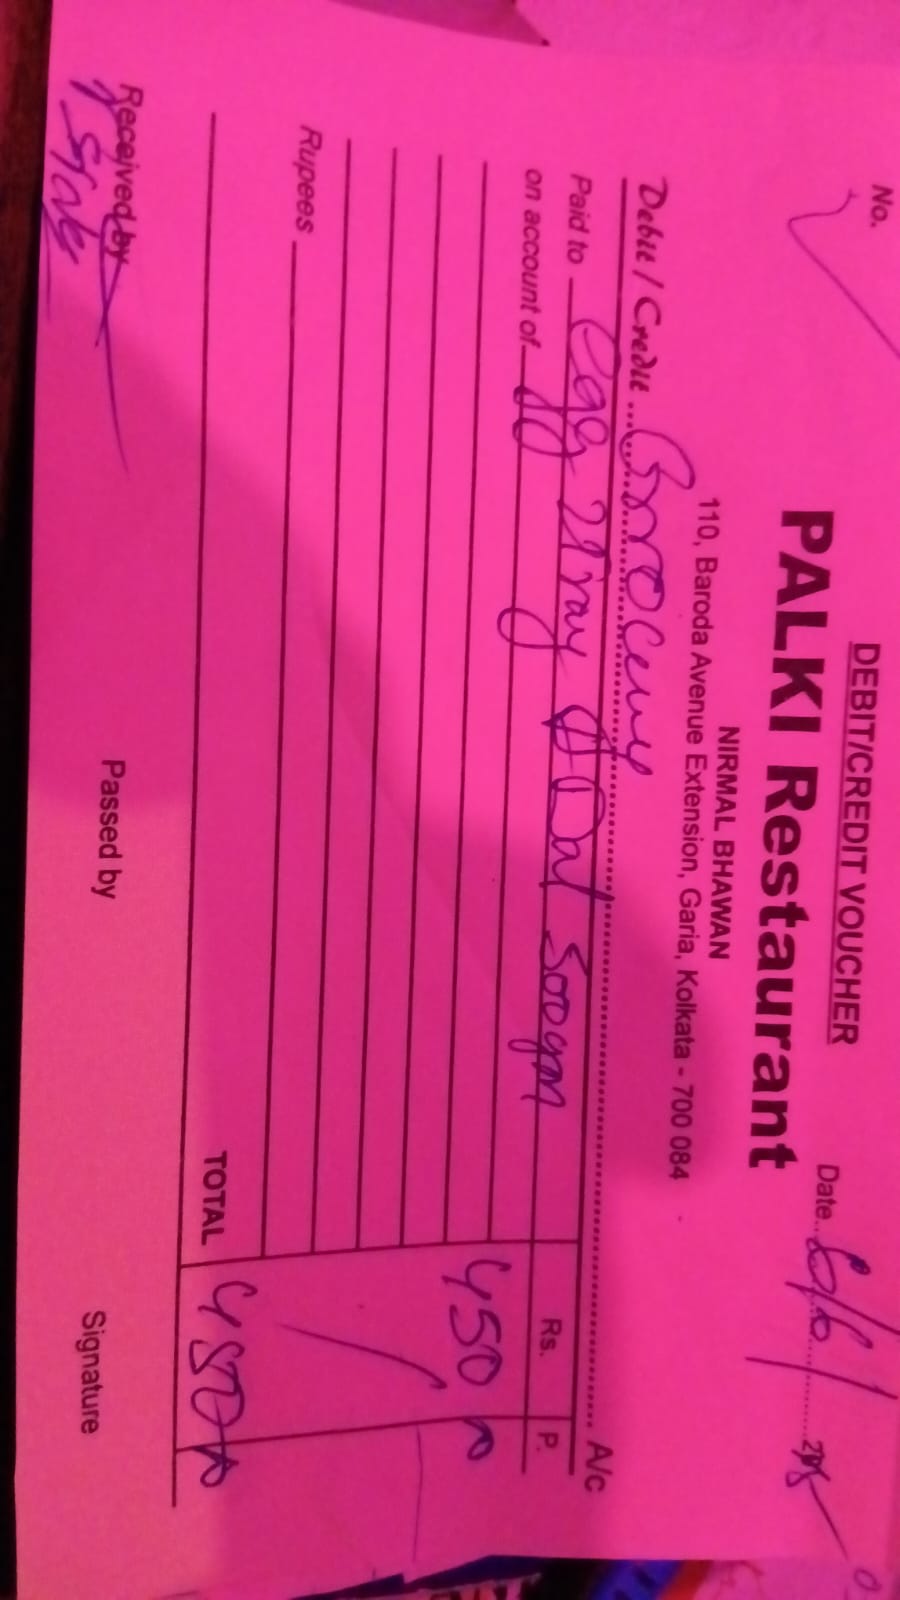 DEBIT/CREDIT VOUCHER
No.
PALKI Restaurant
Date
NIRMAL BHAWAN
110, Baroda Avenue Extension, Garia, Kolkata - 700 084
Debit / Credit Grocery A/c
Paid to Egg 2 Tray Dal 500gm Rs. P.
on account of
450
Rupees
TOTAL 450
Received by Passed by Signature